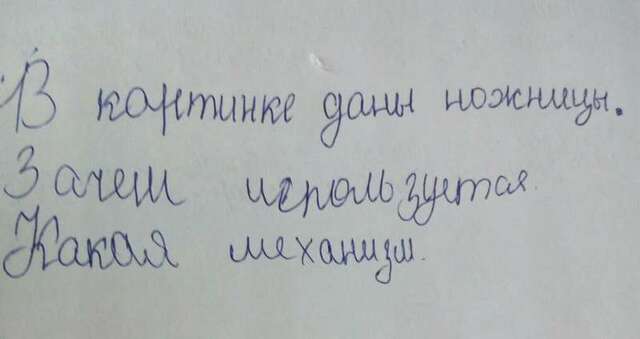 В картинке даны ножницы.
Зачем используется.
Какая механизм.